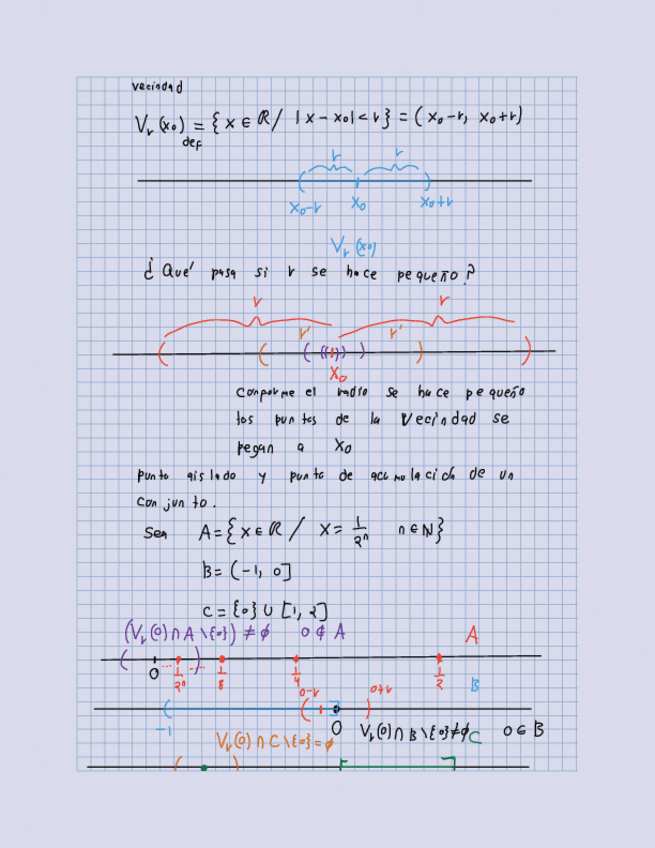 vecindad
Vr (x0) = { x ∈ ℝ / |x - x0| < r } = ( x0-r, x0+r )
def
r r
x0-r x0 x0+r
Vr (x0)
¿ Qué pasa si r se hace pequeño ?
r r
r' r'
x0
Conforme el radio se hace pequeño
los puntos de la Vecindad se
pegan a x0
punto aislado y punto de acumulación de un
conjunto.
Sea A = { x ∈ ℝ / x = 1/2ⁿ n ∈ N }
B = (-1, 0]
C = {0} ∪ [1, 2]
(Vr (0) ∩ A \ {0}) ≠ ∅ 0 ∉ A A
0 1/2ⁿ 1/8 1/4 1/2
0-r 0+r B
-1 0 Vr(0) ∩ B \ {0} ≠ ∅ C 0 ∈ B
Vr (0) ∩ C \ {0} = ∅